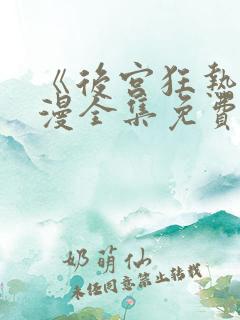 《後宮狂熱
漫全集免費
奶萌仙
未经同意禁止转载